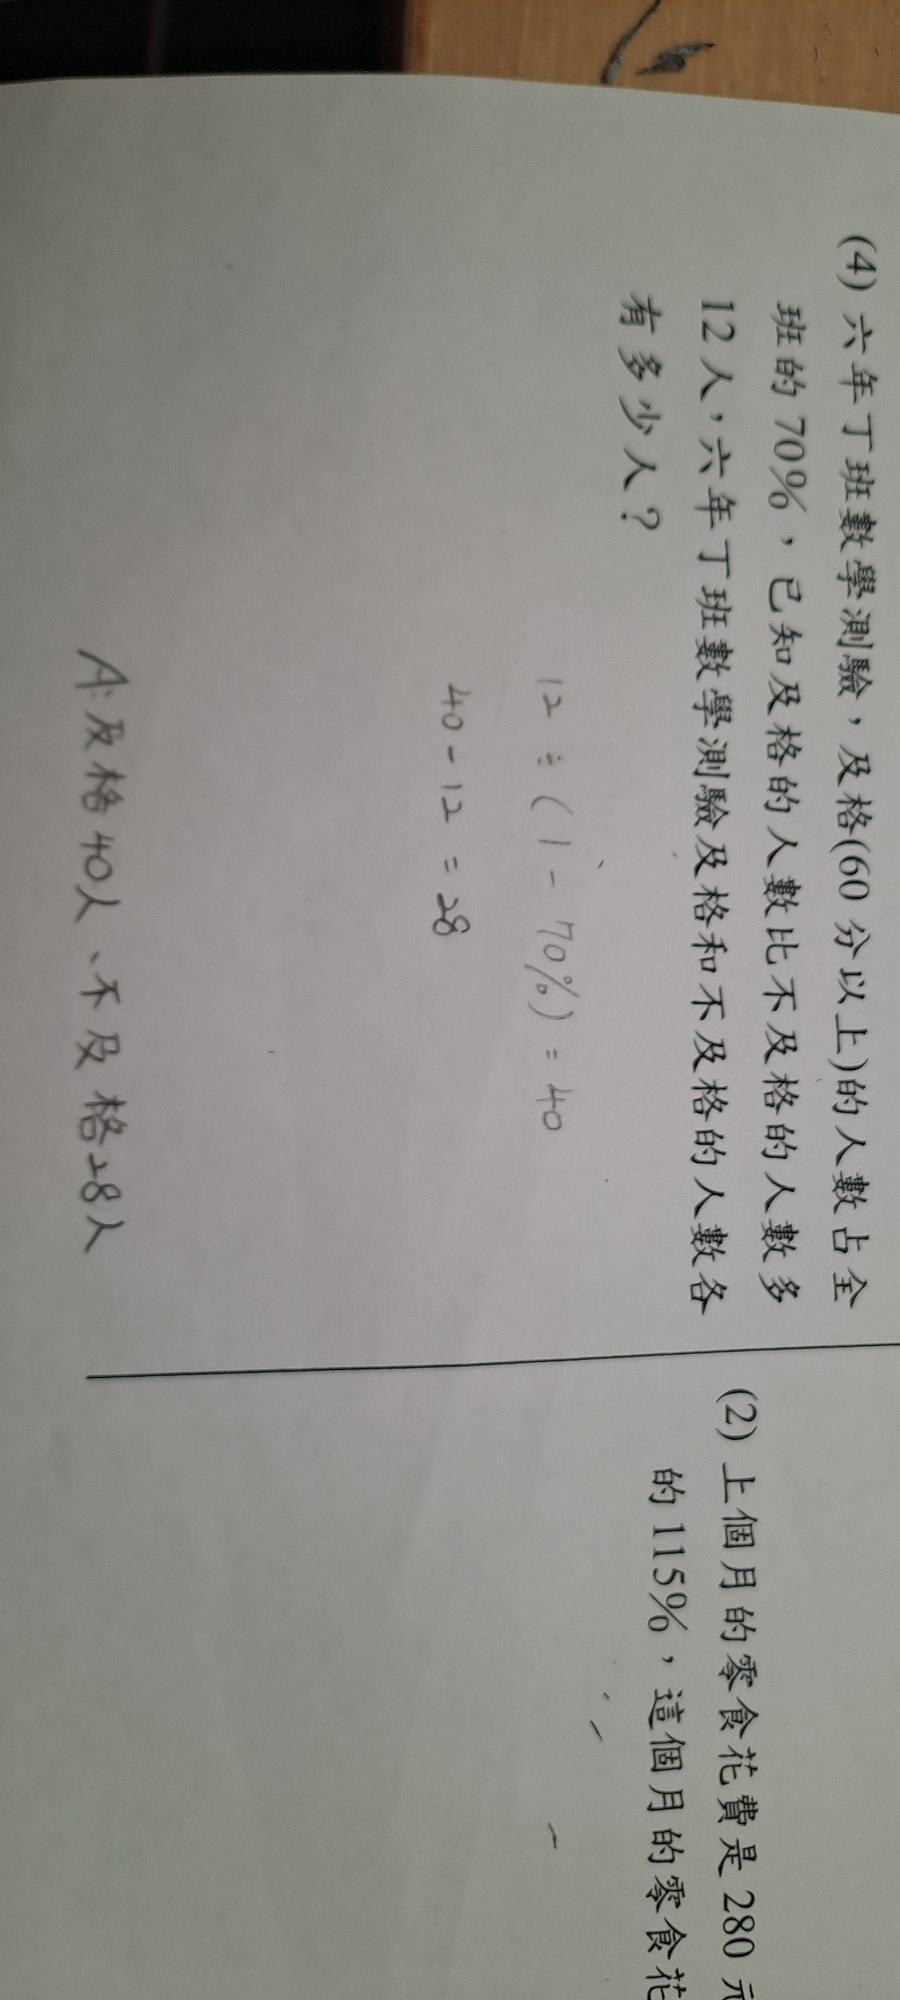 (4) 六年丁班數學測驗，及格(60 分以上)的人數占全
班的 70%，已知及格的人數比不及格的人數多
12 人，六年丁班數學測驗及格和不及格的人數各
有多少人？
12 ÷ ( 1 - 70%) = 40
40 - 12 = 28
A: 及格40人、不及格28人
(2) 上個月的零食花費是 280 元
的 115%，這個月的零食花